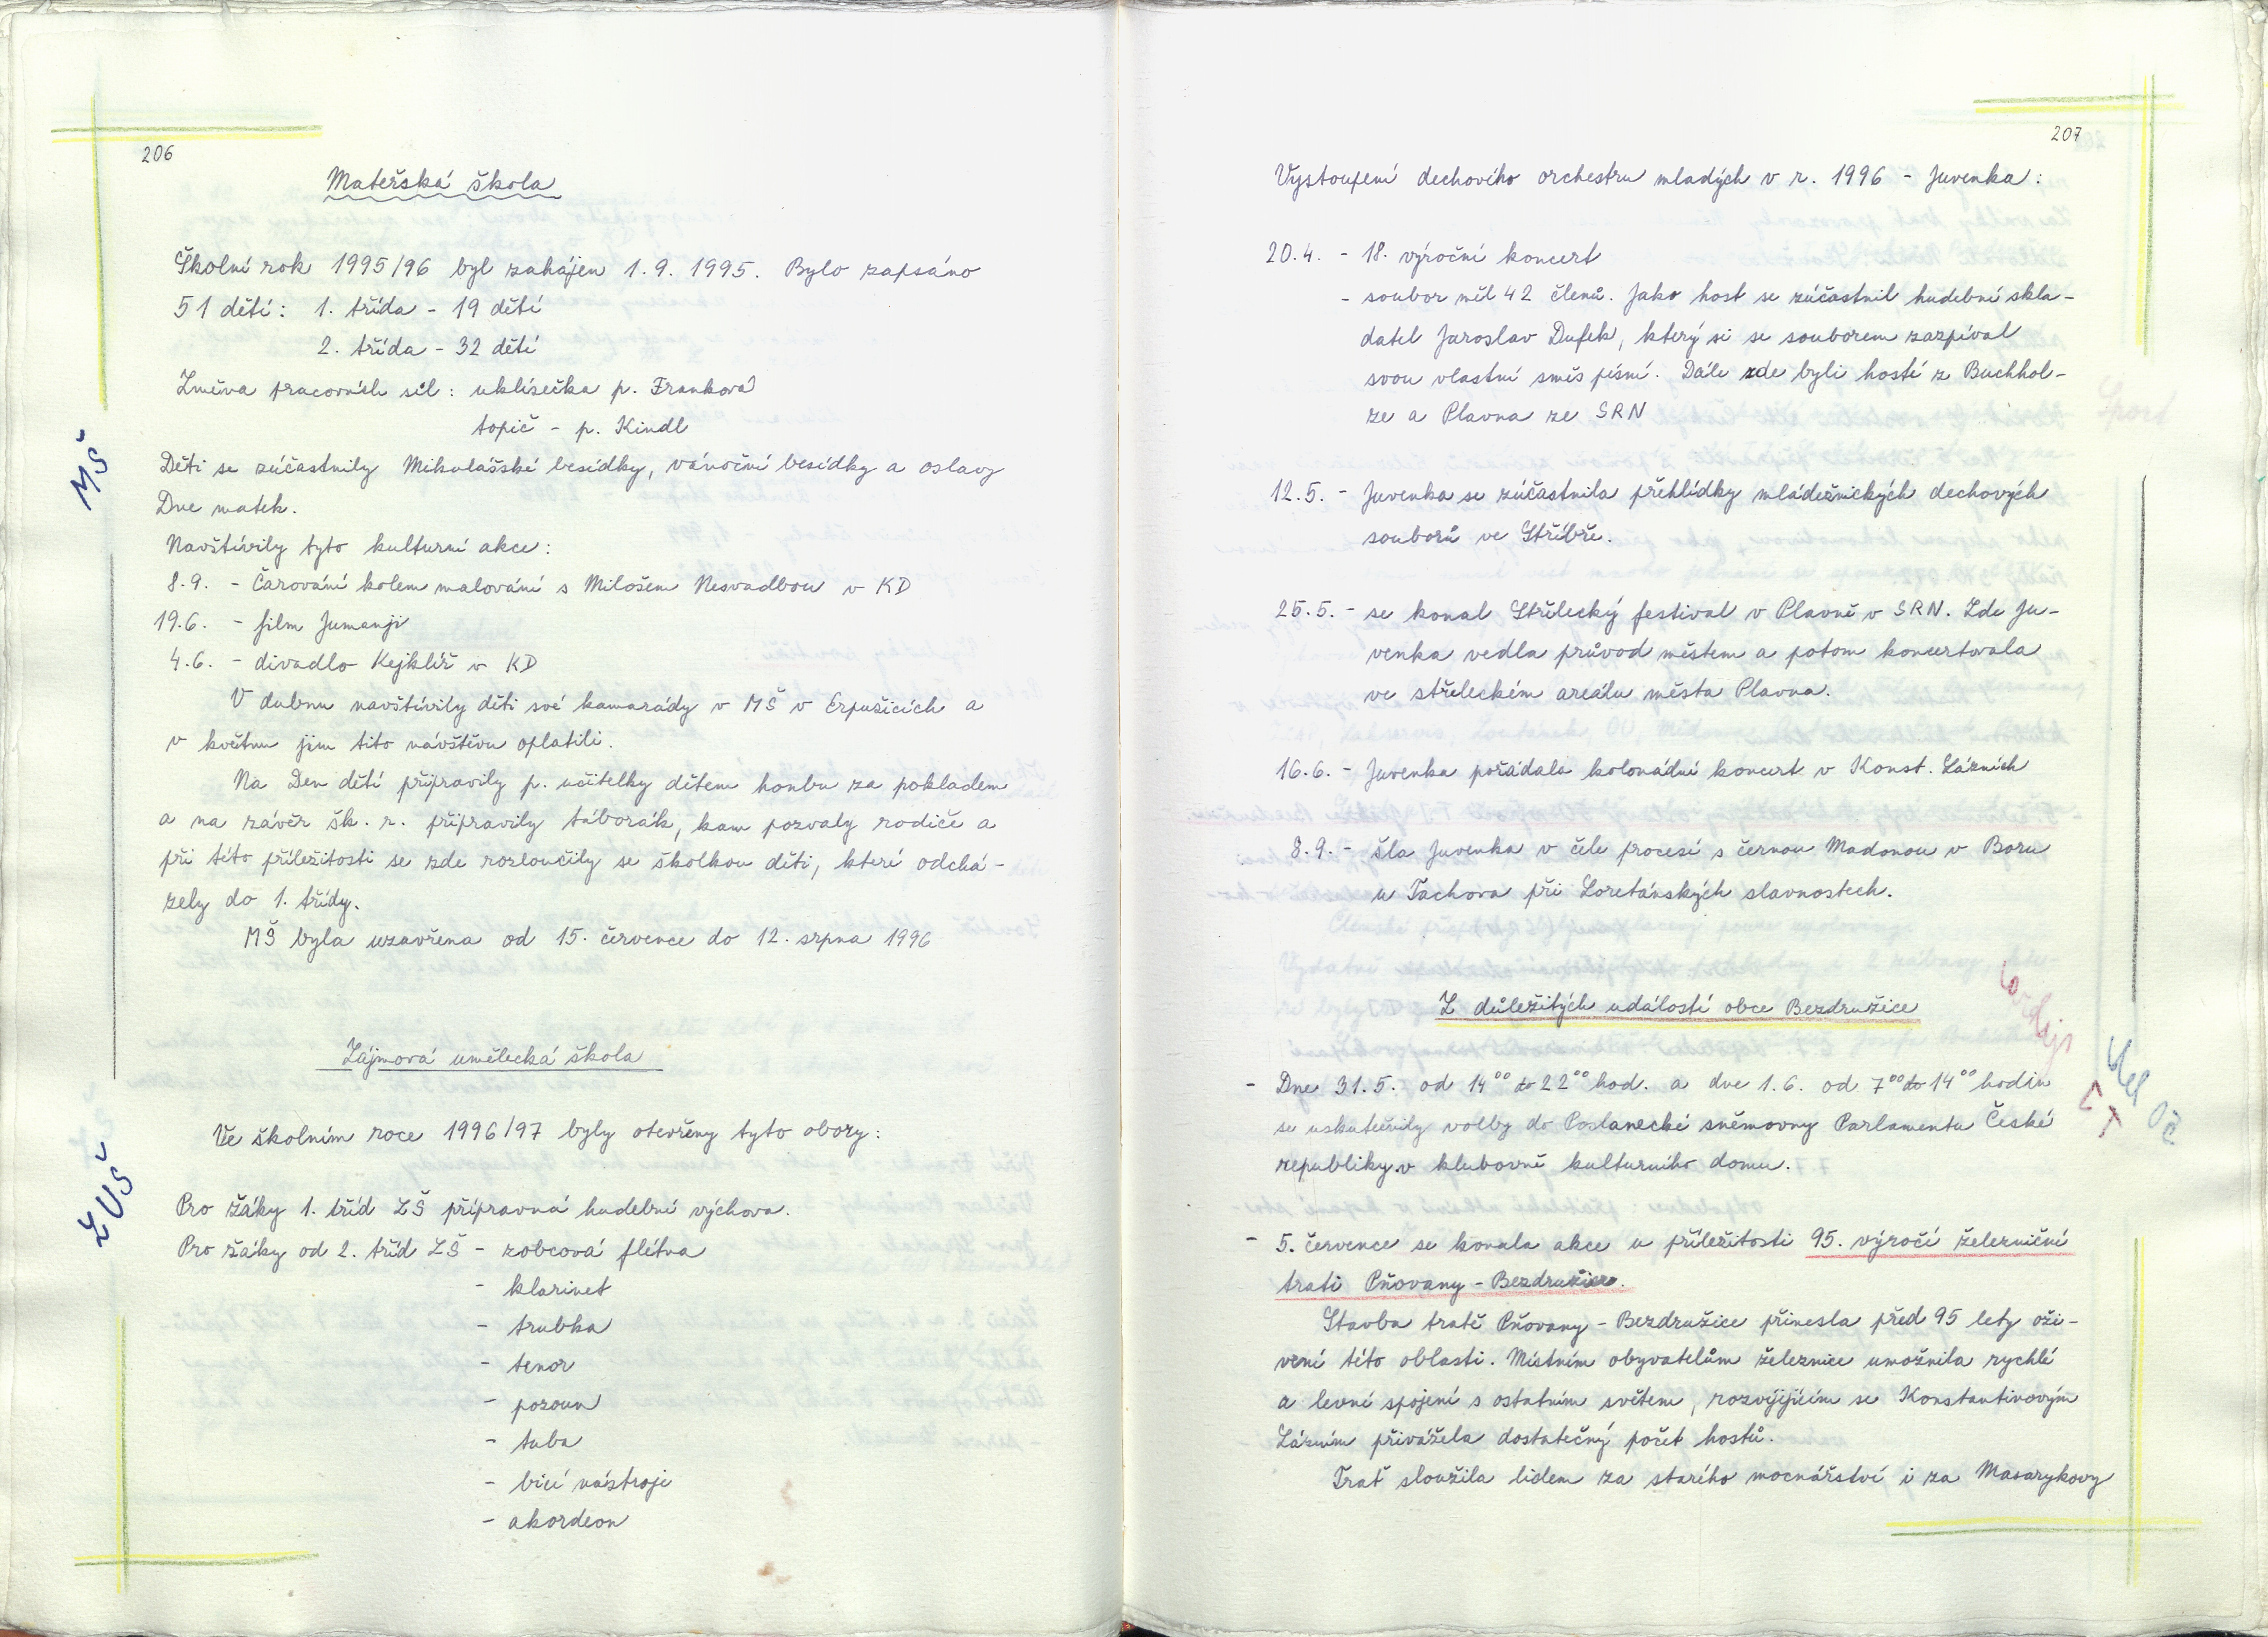 206
Mateřská škola
Školní rok 1995/96 byl zahájen 1.9. 1995. Bylo zapsáno
51 dětí: 1. třída - 19 dětí
2. třída - 32 dětí
Změna pracovních sil: uklízečka p. Franková
topič - p. Kindl
MŠ
Děti se zúčastnily Mikulášské besídky, vánoční besídky a oslavy
Dne matek.
Navštívily tyto kulturní akce:
8.9. - Čarování kolem malování s Milošem Nesvadbou v KD
19.6. - film Jumanji
4.6. - divadlo Kejklíř v KD
V dubnu navštívily děti své kamarády v MŠ v Erpužicích a
v květnu jim tito návštěvu oplatili.
Na Den dětí připravily p. učitelky dětem honbu za pokladem
a na závěr šk. r. připravily táborák, kam pozvaly rodiče a
při této příležitosti se zde rozloučily se školkou děti, které odchá-
zely do 1. třídy.
MŠ byla uzavřena od 15. července do 12. srpna 1996
Zájmová umělecká škola
Ve školním roce 1996/97 byly otevřeny tyto obory:
ZUŠ
Pro žáky 1. tříd ZŠ přípravná hudební výchova.
Pro žáky od 2. tříd ZŠ - zobcová flétna
- klarinet
- trubka
- tenor
- pozoun
- tuba
- bicí nástroje
- akordeon
207
Vystoupení dechového orchestru mladých v r. 1996 - Juvenka:
20.4. - 18. výroční koncert
- soubor měl 42 členů. Jako host se zúčastnil hudební skla-
datel Jaroslav Dufek, který si se souborem zazpíval
svou vlastní směs písní. Dále zde byli hosté z Buchhol-
ze a Plavna ze SRN
12.5. - Juvenka se zúčastnila přehlídky mládežnických dechových
souborů ve Stříbře.
25.5. - se konal Střelecký festival v Plavně v SRN. Zde Ju-
venka vedla průvod městem a potom koncertovala
ve střeleckém areálu města Plavna.
16.6. - Juvenka pořádala kolonádní koncert v Konst. Lázních
8.9. - šla Juvenka v čele procesí s černou Madonou v Boru
u Tachova při Loretánských slavnostech.
Z důležitých událostí obce Bezdružice
- Dne 31.5. od 14⁰⁰ do 22⁰⁰ hod. a dne 1.6. od 7⁰⁰ do 14⁰⁰ hodin
se uskutečnily volby do Poslanecké sněmovny Parlamentu České
republiky v klubovně kulturního domu.
- 5. července se konala akce u příležitosti 95. výročí železniční
trati Pňovany - Bezdružice.
Stavba tratě Pňovany - Bezdružice přinesla před 95 lety oži-
vení této oblasti. Místním obyvatelům železnice umožnila rychlé
a levné spojení s ostatním světem, rozvíjejícím se Konstantinovým
Lázním přivážela dostatečný počet hostů.
Trať sloužila lidem za starého mocnářství i za Masarykovy